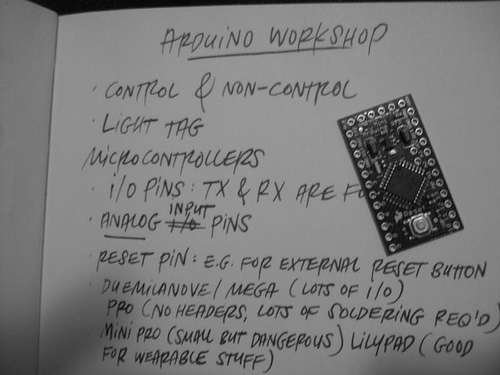 ARDUINO WORKSHOP
· CONTROL & NON-CONTROL
· LIGHT TAG
MICROCONTROLLERS
· I/O PINS: TX & RX ARE
· ANALOG INPUT I/O PINS
· RESET PIN: E.G. FOR EXTERNAL RESET BUTTON
· DUEMILANOVE / MEGA (LOTS OF I/O)
PRO (NO HEADERS, LOTS OF SOLDERING REQ'D)
· MINI PRO (SMALL BUT DANGEROUS) LILYPAD (GOOD
FOR WEARABLE STUFF)